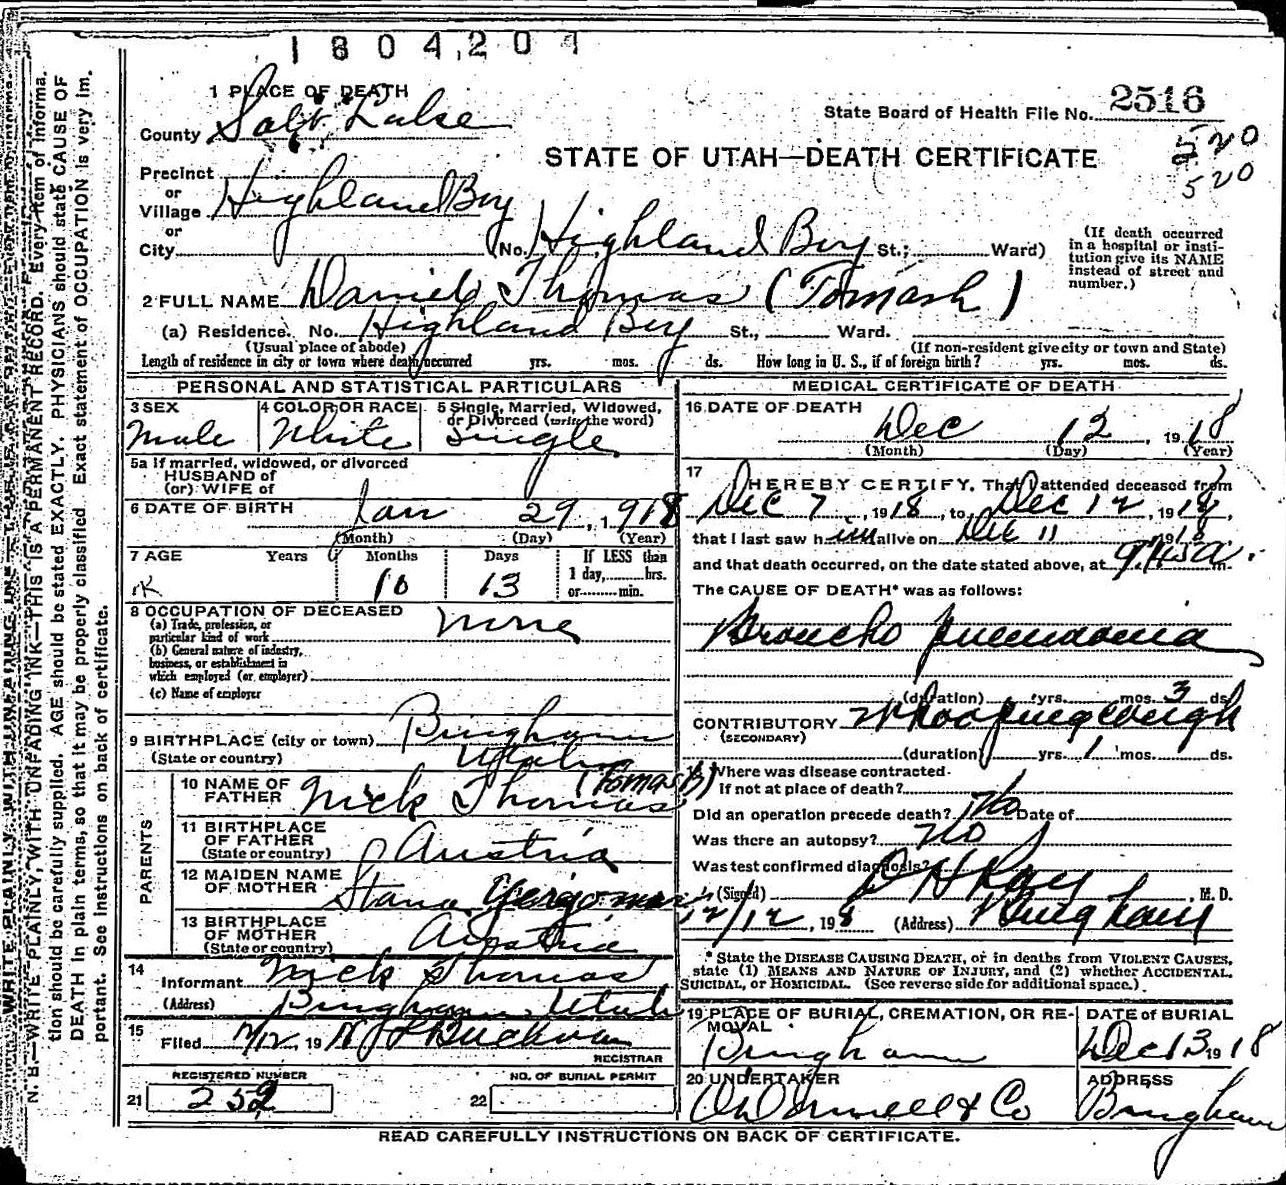 1804,204
1 PLACE OF DEATH
County Salt Lake
State Board of Health File No. 2516
520
520
STATE OF UTAH—DEATH CERTIFICATE
Precinct
or
Village Highland Boy
or
City (No. Highland Boy St.; Ward)
(If death occurred in a hospital or institution give its NAME instead of street and number.)
2 FULL NAME Daniel Thomas (Tomash)
(a) Residence. No. Highland Boy St., Ward.
(Usual place of abode) (If non-resident give city or town and State)
Length of residence in city or town where death occurred yrs. mos. ds. How long in U. S., if of foreign birth? yrs. mos. ds.
PERSONAL AND STATISTICAL PARTICULARS
3 SEX 4 COLOR OR RACE 5 Single, Married, Widowed, or Divorced (write the word)
Male White Single
5a If married, widowed, or divorced
HUSBAND of
(or) WIFE of
6 DATE OF BIRTH
Jan 29, 1918
(Month) (Day) (Year)
7 AGE Years Months Days If LESS than
1 day, hrs.
or min.
10 13
8 OCCUPATION OF DECEASED none
(a) Trade, profession, or
particular kind of work
(b) General nature of industry,
business, or establishment in
which employed (or employer)
(c) Name of employer
9 BIRTHPLACE (city or town) Bingham
(State or country) Utah
PARENTS
10 NAME OF FATHER Nick Thomas (Tomash)
11 BIRTHPLACE OF FATHER
(State or country) Austria
12 MAIDEN NAME OF MOTHER Stana
13 BIRTHPLACE OF MOTHER
(State or country) Austria
14 Informant Nick Thomas
(Address) Bingham, Utah
15 Filed 12/12, 19
REGISTRAR
REGISTERED NUMBER NO. OF BURIAL PERMIT
21 252 22
MEDICAL CERTIFICATE OF DEATH
16 DATE OF DEATH
Dec 12, 1918
(Month) (Day) (Year)
17 I HEREBY CERTIFY, That I attended deceased from
Dec 7, 1918, to Dec 12, 1918,
that I last saw him alive on Dec 11 1918
and that death occurred, on the date stated above, at 9.45 a. m.
The CAUSE OF DEATH* was as follows:
Broncho Pneumonia
(duration) yrs. mos. 3 ds.
CONTRIBUTORY Whooping cough
(SECONDARY)
(duration) yrs. 1 mos. ds.
18 Where was disease contracted
if not at place of death?
Did an operation precede death? No Date of
Was there an autopsy? No
Was test confirmed diagnosis?
(Signed) D H Ray, M. D.
12/12, 198 (Address) Bingham
* State the DISEASE CAUSING DEATH, or in deaths from VIOLENT CAUSES,
state (1) MEANS AND NATURE OF INJURY, and (2) whether ACCIDENTAL,
SUICIDAL, or HOMICIDAL. (See reverse side for additional space.)
19 PLACE OF BURIAL, CREMATION, OR REMOVAL DATE OF BURIAL
Bingham Dec 13 1918
20 UNDERTAKER ADDRESS
O'Donnell & Co Bingham
READ CAREFULLY INSTRUCTIONS ON BACK OF CERTIFICATE.
WRITE PLAINLY WITH UNFADING INK
N. B.—WRITE PLAINLY, WITH UNFADING INK—THIS IS A PERMANENT RECORD. Every item of informa-
tion should be carefully supplied. AGE should be stated EXACTLY. PHYSICIANS should state CAUSE OF
DEATH in plain terms, so that it may be properly classified. Exact statement of OCCUPATION is very im-
portant. See instructions on back of certificate.